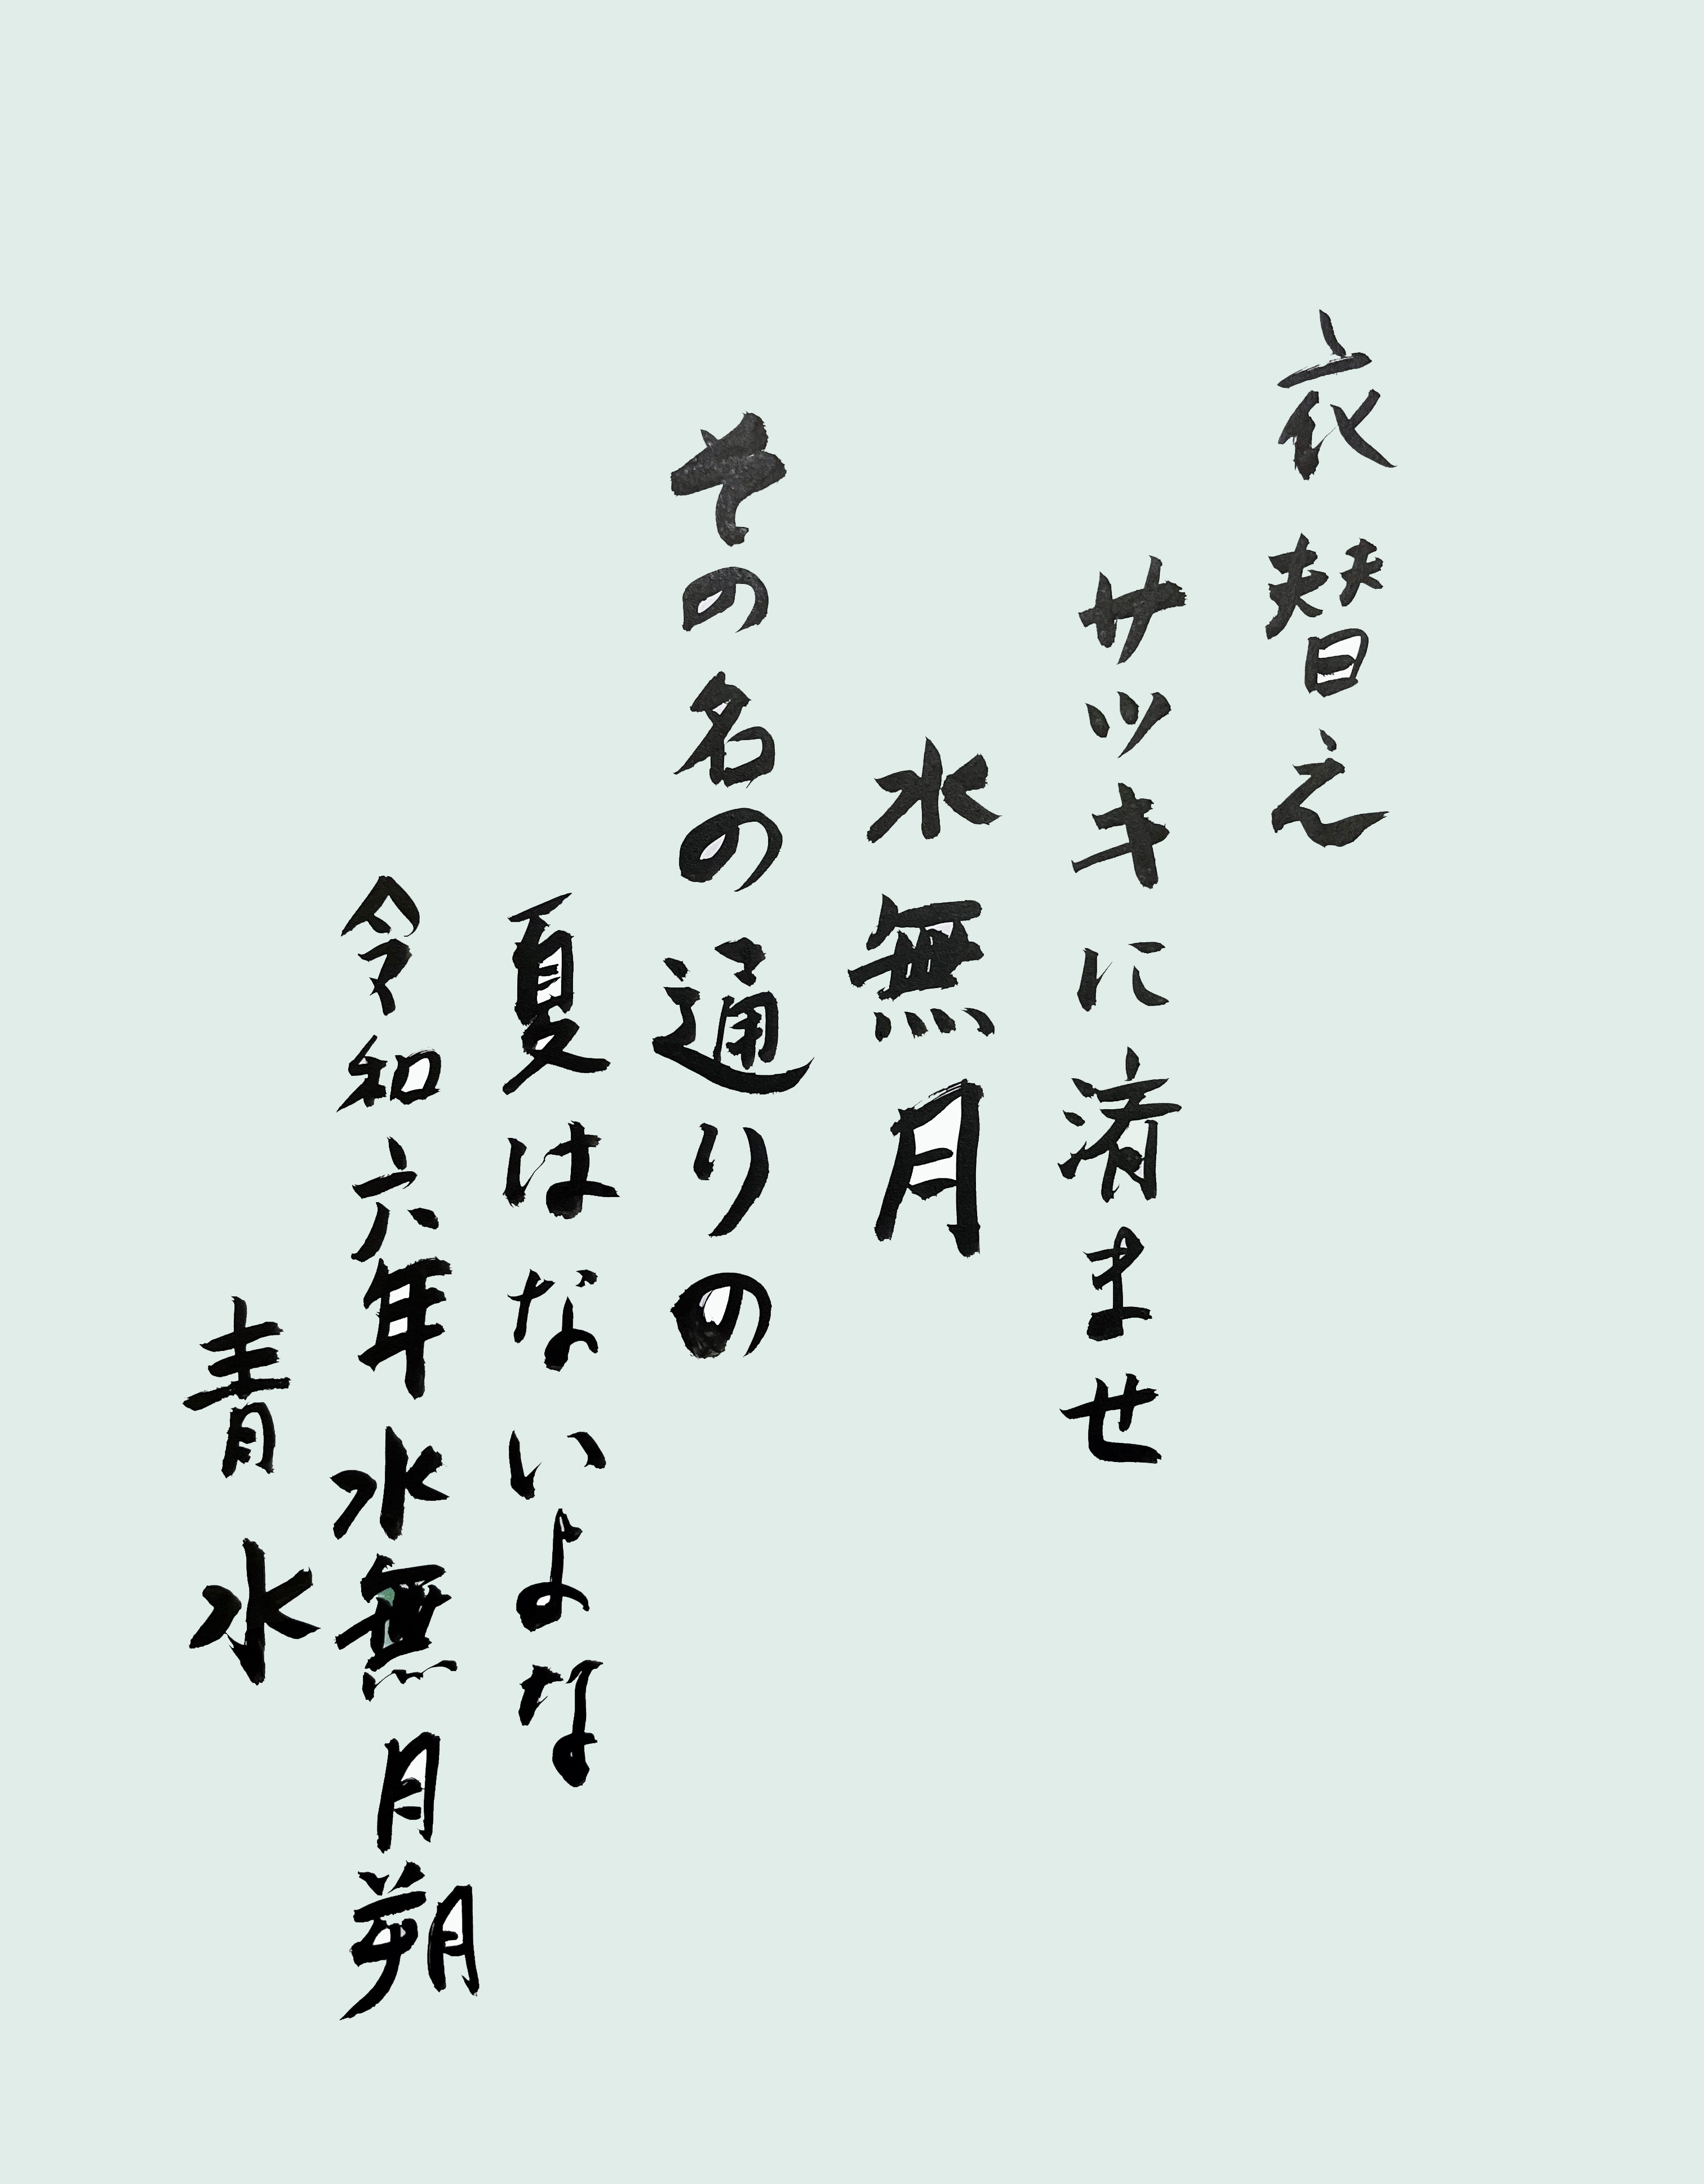 衣替え
サツキに済ませ
水無月
その名の通りの
夏はないよな
令和六年水無月朔
青水